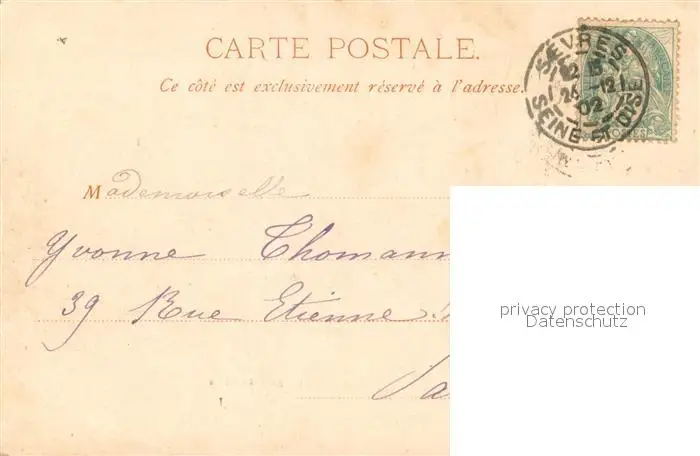 CARTE POSTALE.
Ce côté est exclusivement réservé à l'adresse.
SÈVRES
12
24 12
02
SEINE-ET-OISE
POSTES
Mademoiselle
Yvonne Thomann
39 Rue Etienne
privacy protection
Datenschutz